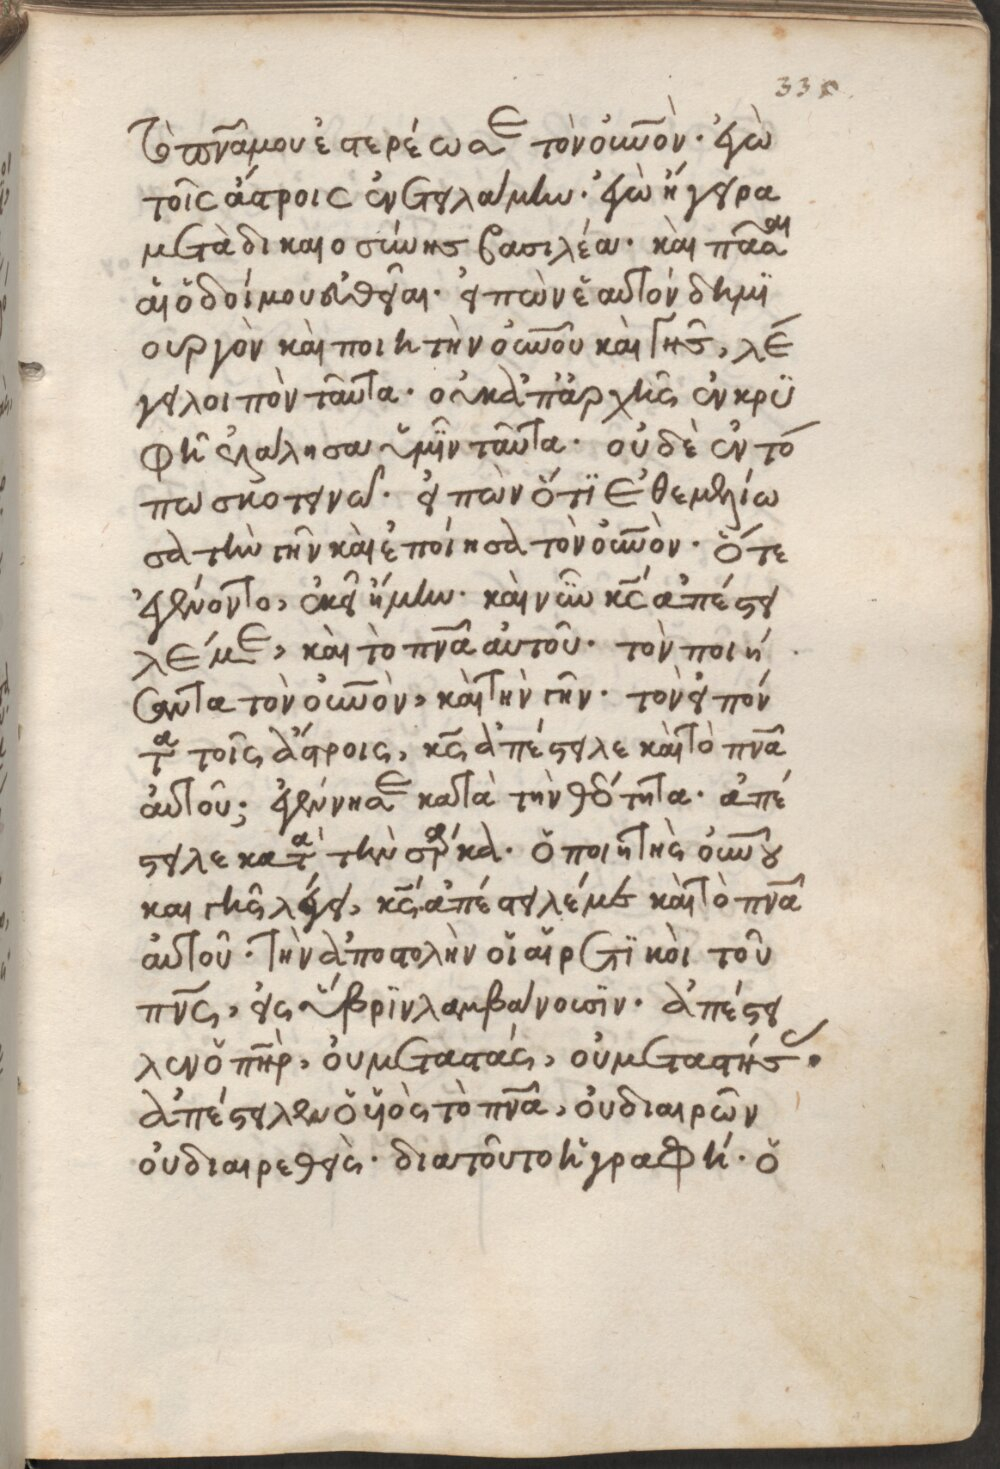 330
τὸ πνᾶ μου ἐστερέωσε τὸν οὐνὸν· ἐγὼ
τοῖς ἄστροις ἐνετειλάμην· ἐγὼ ἤγειρα
μετὰ δικαιοσύνης βασιλέα· καὶ πᾶσαι
αἱ ὁδοί μου εὐθεῖαι· εἰπὼν ἑαυτὸν δημϊ
ουργὸν καὶ ποιητὴν οὐνοῦ καὶ γῆς, λέ
γει λοιπὸν ταῦτα· οὐκ ἀπ' ἀρχῆς ἐν κρϋ
φῆ ἐλάλησα ὑμῖν ταῦτα· οὐδὲ ἐν τό
πω σκοτεινῶ· εἰπὼν ὅτϊ ἐθεμελίω
σα τὴν γῆν καὶ ἐποίησα τὸν οὐνὸν· ὅτε
ἐγένοντο, ἐκεῖ ἤμην· καὶ νῦν κς ἀπέστει
λέ με, καὶ τὸ πνᾶ αὐτοῦ· τὸν ποιή
σαντα τὸν οὐνὸν, καὶ τὴν γῆν· τὸν εἰπόν
τα τοῖς ἄστροις, κς ἀπέστειλε καὶ τὸ πνᾶ
αὐτοῦ; ἐγέννησε κατὰ τὴν θεότητα· ἀπέ
στειλε κατὰ τὴν σάρκα· ὁ ποιητὴς οὐνοῦ
καὶ γῆς λέγει, κς ἀπέστειλέ με καὶ τὸ πνᾶ
αὐτοῦ· τὴν ἀποστολὴν οἱ αἱρετϊκοὶ τοῦ
πνς, εἰς ὕβρϊν λαμβάνουσϊν· ἀπέστει
λεν ὁ πηρ, οὐ μεταστάς, οὐ μεταστήσας·
ἀπέστειλεν ὁ υἱὸς τὸ πνᾶ, οὐ διαιρῶν
οὐ διαιρεθεὶς· διατοῦτο ἡ γραφή· ὁ